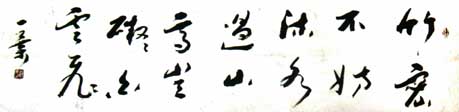 竹密
不妨
流水
過山
高豈
礙白
雲飛